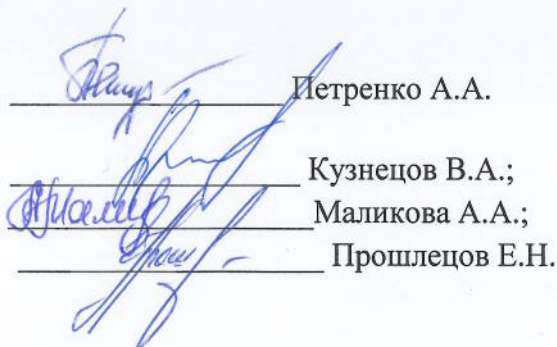 Петренко А.А.
Кузнецов В.А.;
Маликова А.А.;
Прошлецов Е.Н.